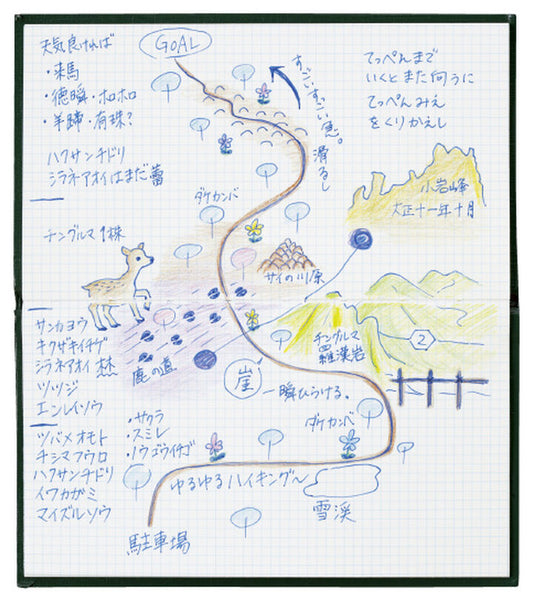 天気良ければ
・来馬
・徳瞬・ホロホロ
・羊蹄・有珠?
ハクサンチドリ
シラネアオイはまだ蕾
チングルマ 1株
サンカヨウ
キクザキイチゲ
シラネアオイ
ツツジ
エンレイソウ
ツバメオモト
チシマフウロ
ハクサンチドリ
イワカガミ
マイズルソウ
GOAL
すごいすごい急。
滑るし
てっぺんまで
いくと また向うに
てっぺんみえ
をくりかえし
小岩峰
大正十一年十月
ダケカンバ
サイの川原
チングルマ
羅漢岩
2
鹿の道
崖
一瞬ひらける。
ダケカンバ
・サクラ
・スミレ
・ノウゴウイチゴ
ゆるゆるハイキング〜
雪渓
駐車場